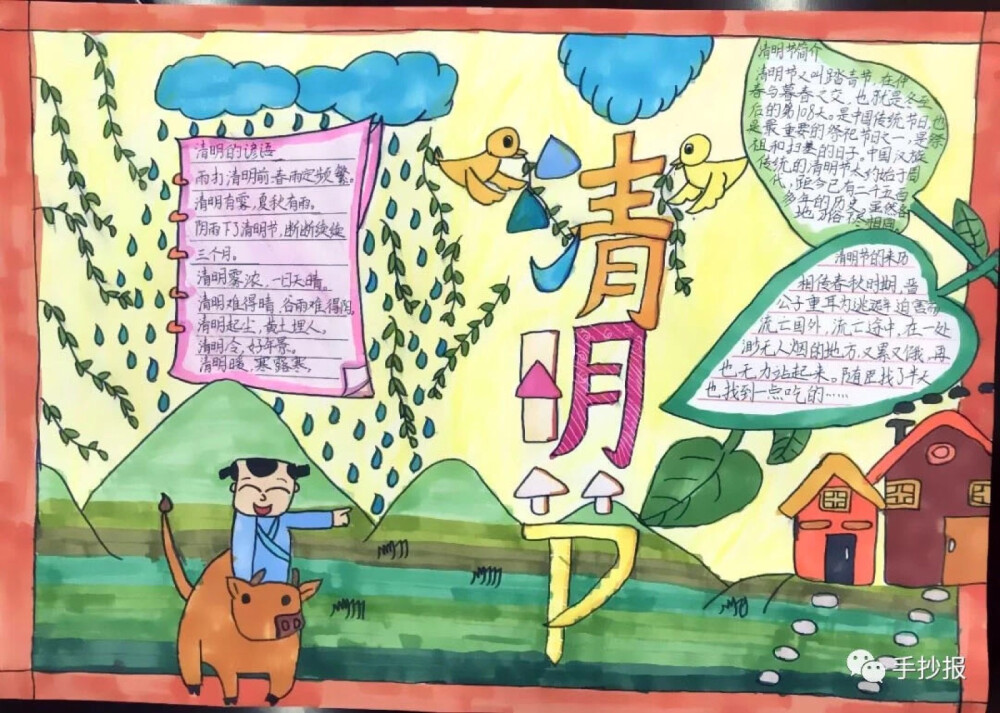 清明的谚语
雨打清明前,春雨定频繁。
清明有雾,夏秋有雨。
阴雨下了清明节,断断续续
三个月。
清明雾浓,一日天晴。
清明难得晴,谷雨难得阴。
清明起尘,黄土埋人。
清明冷,好年景。
清明暖,寒露寒。
清明节
清明节简介
清明节又叫踏青节,在仲
春与暮春之交,也就是冬至
后的第108天。是中国传统节日,也
是最重要的祭祀节日之一,是祭
祖和扫墓的日子。中国汉族
传统的清明节大约始于周
代,距今已有二千五百
多年的历史,虽然各
地习俗不尽相同。
清明节的来历
相传春秋时期,晋
公子重耳为逃避迫害而
流亡国外,流亡途中,在一处
渺无人烟的地方,又累又饿,再
也无力站起来。随臣找了半天
也找到一点吃的……
手抄报